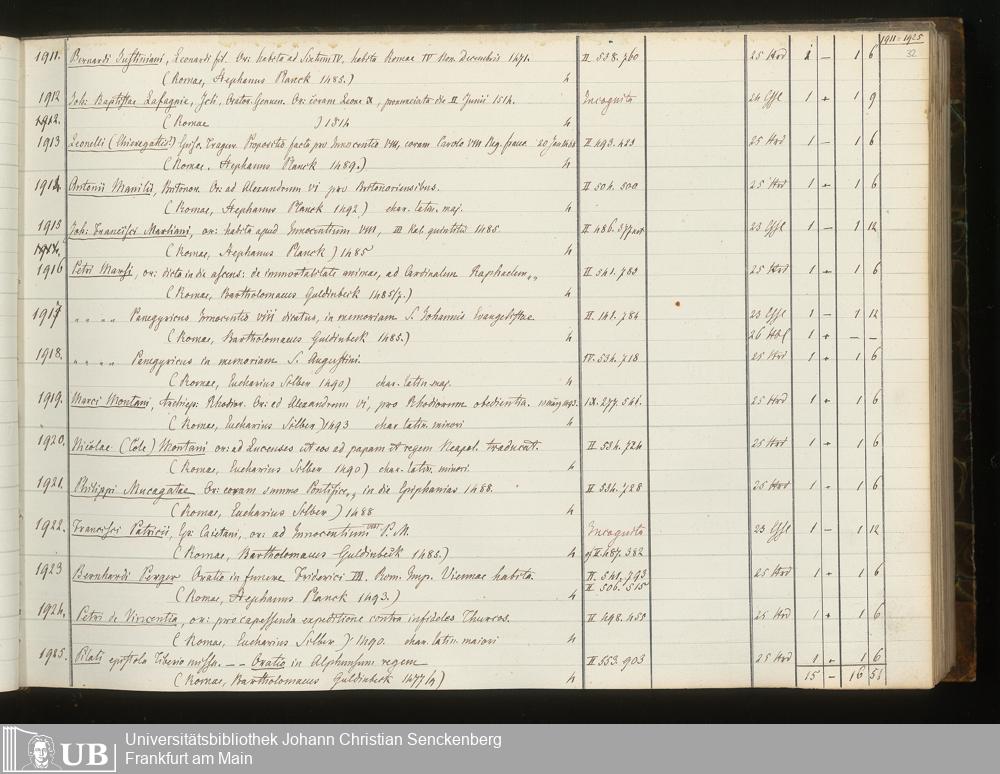 1911=1925
32
1911. Bernardi Justiniani, Leonardi fil. Or: habita ad Sixtum IV. habita Romae IV Non. Decembris 1471. II. 538. 760 25 Hrd 1 — 1 6
(Romae, Stephanus Planck 1485.) 4
1912 Joh: Baptistae Lasagnie, Orator. Genuen. Or: coram Leone X, pronunciata die II Junii 1514. Incognita 24 1 — 1 9
1912. (Romae ) 1514 4
1913 Leonelli (Chieregatti?) Episc. Tragur. Propositio facta pro Innocentio VIII, coram Carolo VIII Reg. franc. 20 Jan. II 493. 423 25 Hrd 1 — 1 6
(Romae. Stephanus Planck 1489.) 4
1914 Antonii Manilii, Britonor. Or: ad Alexandrum VI pro Britonoriensibus. II 504. 500 25 Hrd 1 — 1 6
(Romae, Stephanus Planck 1492) char. latin. maj. 4
1915 Joh: Francisci Marliani, or: habita apud Innocentium VIII, III Kal quintilis 1485. II 486. 23 1 — 1 12
(Romae, Stephanus Planck) 1485 4
1916 Petri Marsi, or: dicta in die ascens: de immortalitate animae, ad Cardinalem Raphaelem,, II 541. 783 25 Hrd 1 — 1 6
(Romae, Bartholomaeus Guldinbeck 1485/7.) 4
1917 " " " " Panegyricus Innocentio VIII dicatus, in memoriam S. Johannis Evangelistae II. 141. 784 23 1 — 1 12
(Romae, Bartholomaeus Guldinbeck 1485.) 4 26 1 — — —
1918. " " " " Panegyricus in memoriam S. Augustini. IV. 534. 718 25 Hrd 1 — 1 6
(Romae, Eucharius Silber 1490) char. latin. maj. 4
1919. Marci Montani, Archiep: Rhodior. Or: ad Alexandrum VI, pro Rhodiorum obedientia. IX. 277. 541. 25 Hrd 1 — 1 6
(Romae, Eucharius Silber) 1493 char. latin. minori 4
1920. Nicolae (Cole) Montani or: ad Lucenses et eos ad papam et regem Neapol. traducat. II 534. 724 25 Hrd 1 — 1 6
(Romae, Eucharius Silber 1490) char. latin. minori. 4
1921. Philippi Mucagatae Or: coram summo Pontifice,, in die Epiphanias 1488. II 534. 728 25 Hrd 1 — 1 6
(Romae, Eucharius Silber) 1488 4
1922. Francisci Patricii, Ep: Caietani, or: ad Innocentium VIII P. M. Incognita 23 1 — 1 12
(Romae, Bartholomaeus Guldinbeck 1485.) 4 cf II 487. 382
1923 Bernhardi Perger Oratio in funere Friderici III. Rom. Imp. Viennae habita. II. 541. 793 25 Hrd 1 — 1 6
II 506. 515
(Romae, Stephanus Planck 1493.) 4
1924. Petri de Vincentia, or: pro capessenda expeditione contra infideles Thurcos. II 498. 455 25 Hrd 1 — 1 6
(Romae, Eucharius Silber) 1490. char. latin. maiori 4
1925. Pilati epistola Tiberio missa. — — Oratio in Alphunsum regem II 553. 903 25 Hrd 1 — 1 6
(Romae, Bartholomaeus Guldinbeck 1477 4) 4 15 — 16 51
UB
Universitätsbibliothek Johann Christian Senckenberg
Frankfurt am Main